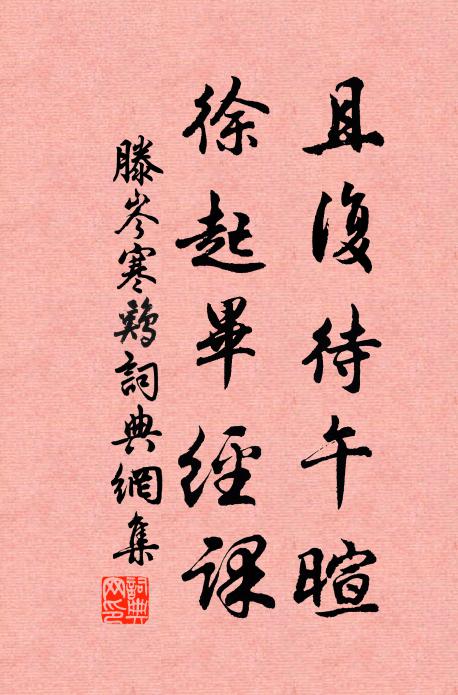 且復待午暄
徐起畢經課
滕岑寒鷄詞典網集
詞典网印